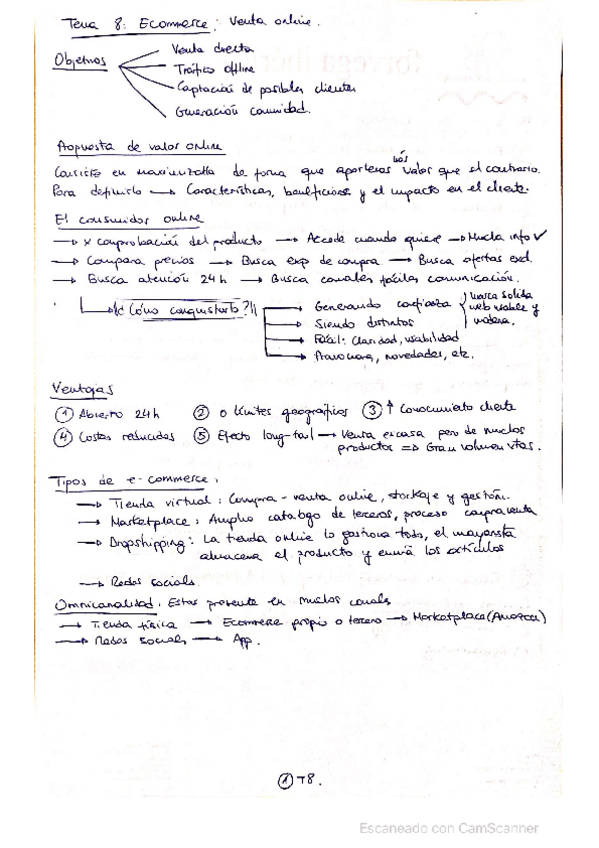 Tema 8: Ecommerce: Venta online.
Objetivos
Venta directa
Tráfico offline
Captación de posibles clientes
Generación comunidad.
Propuesta de valor online
Consiste en maximizarla de forma que aporteras más valor que el contrario.
Para definirlo → Características, beneficios y el impacto en el cliente.
El consumidor online
→ x comprobación del producto → Accede cuando quiere → Mucha info ✓
→ Compara precios → Busca exp de compra → Busca ofertas excl.
→ Busca atención 24h → Busca canales fáciles comunicación.
→ ¿Cómo conquistarlo?
→ Generando confianza { marca solida web usable y
→ Siendo distintos
→ Fácil: claridad, usabilidad
→ Promociona, novedades, etc.
Ventajas
① Abierto 24h ② 0 límites geográficos ③ ↑ Conocimiento cliente
④ Costes reducidos ⑤ Efecto long-tail → Venta escasa pero de muchos
productos => Gran volumen vtas.
Tipos de e-commerce:
→ Tienda virtual: Compra-venta online, stockaje y gestión.
→ Marketplace: Amplio catalogo de terceros, proceso compraventa
→ Dropshipping: La tienda online lo gestiona todo, el mayorista
almacena el producto y envía los artículos
→ Redes socials.
Omnicanalidad. Estar presente en muchos canals
→ Tienda física → Ecommerce propio o tercero → Marketplace (Amazon)
→ Redes socials → App.
① T8.
Escaneado con CamScanner